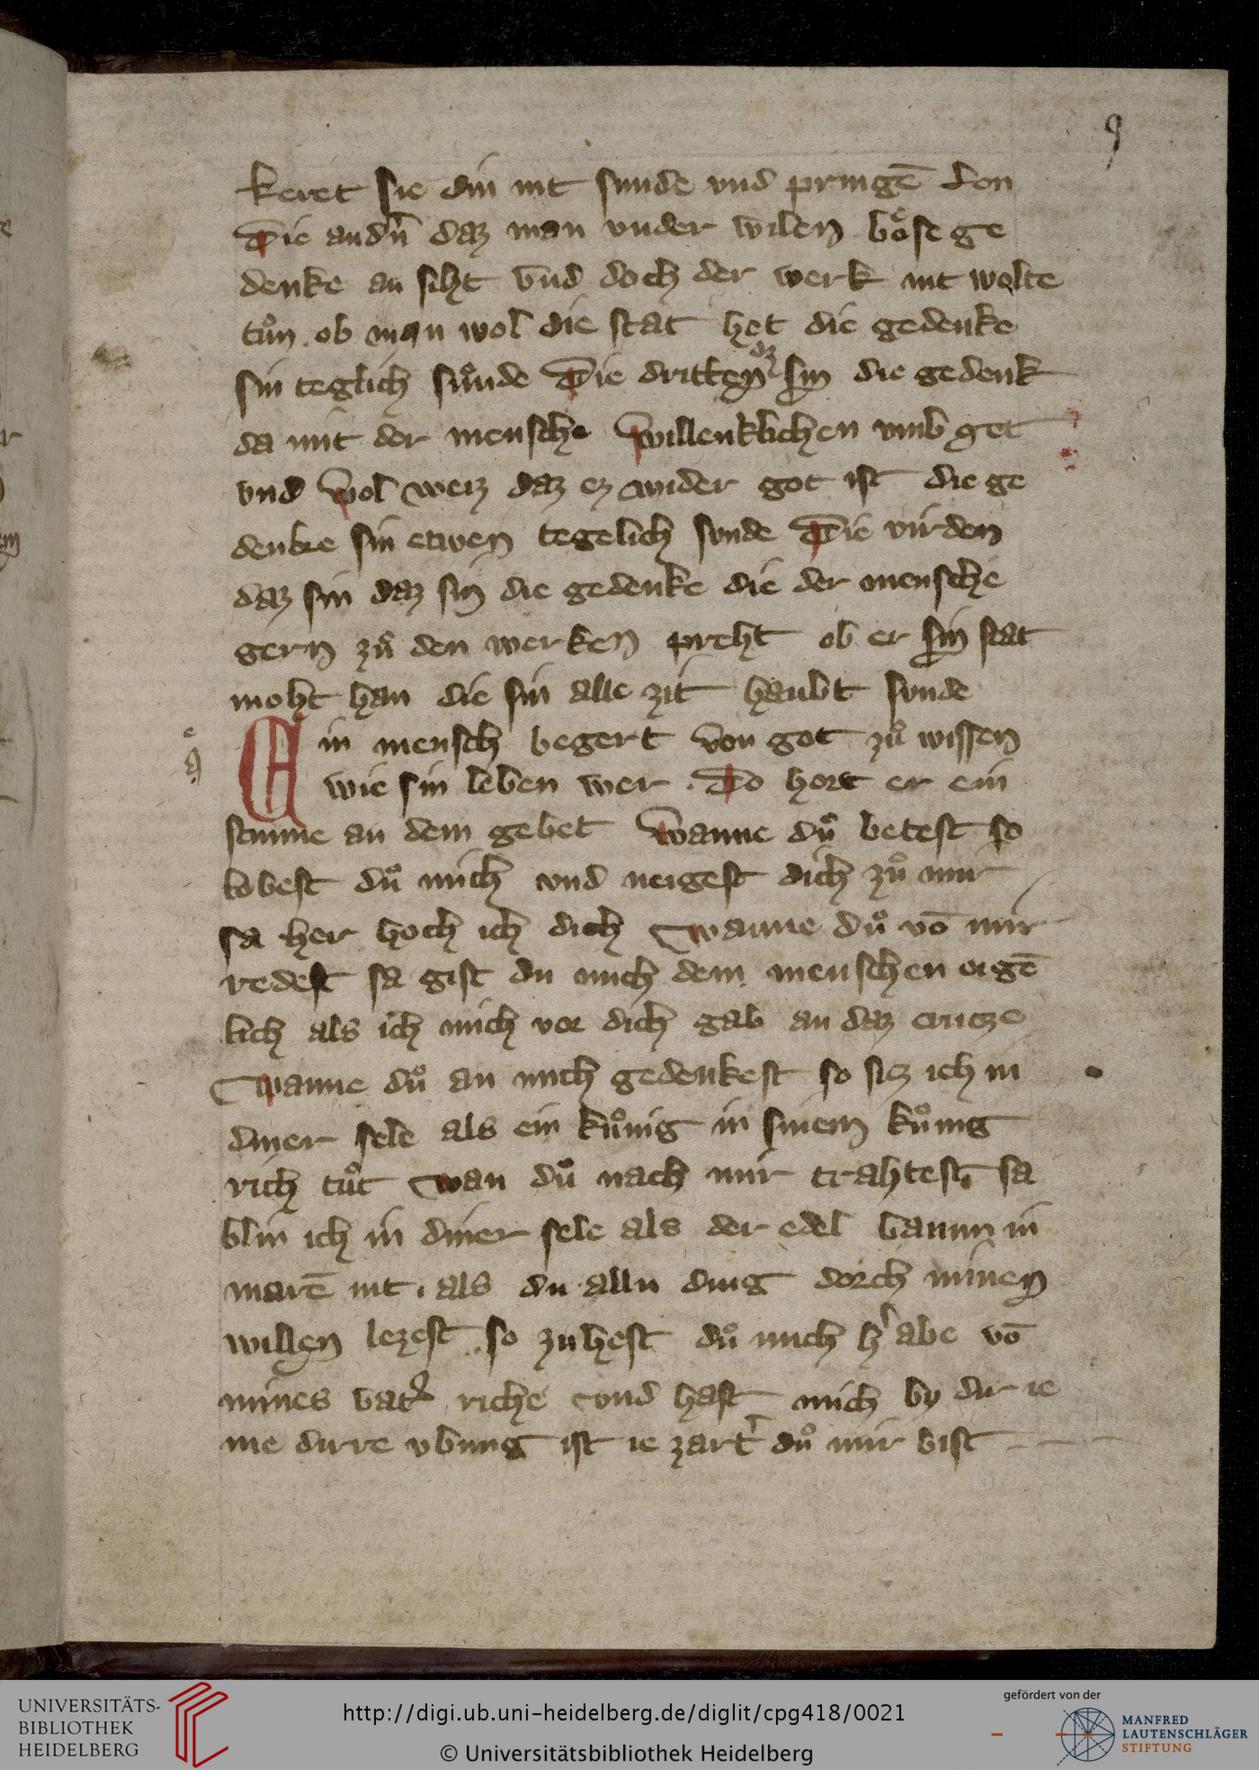 9
keret sie din nit sunde vnd pringē lon
Die andn̄ daz man vnder wilen boͤse ge
denke an siht vnd doch der werk nit wolte
tuͦn ob man wol die stat het die gedenke
sin teglich suͤnde Die dritten dz sin die gedenk
da mit der mensche willenklichen vmb get
vnd wol weiz daz ez wider got ist die ge
denke sin etwen tegelich sunde Die virden
daz sin daz sin die gedenke die der mensche
gern zuͦ den werken preht ob er sin stat
moht han die sin alle zit haubt sunde
Ein mensch begert von got zuͦ wissen
wie sin leben wer . Do hort er ein
stimme an dem gebet wanne duͦ betest so
lobest duͦ mich vnd neigest dich zuͦ mir
sa her hoch ich dich wanne duͦ vō mir
redest sa gist du mich dem menschen eigē
lich als ich mich vor dich gab an daz cruцze
wanne duͦ an mich gedenkest so siz ich in
diner sele als ein kuͤnig in sinem kuͤnig
rich tuͦt wan duͦ nach mir trahtest sa
blin ich in diner sele als der edel baum in
marē nit . als du alln ding dorch minen
willen lezest . so zuhest duͦ mich h'abe vō
mines vat' riche vnd hast mich by dir ie
me dirre vbung ist ie zart' duͦ mir bist
UNIVERSITÄTS-
BIBLIOTHEK
HEIDELBERG
http://digi.ub.uni-heidelberg.de/diglit/cpg418/0021
© Universitätsbibliothek Heidelberg
gefördert von der
MANFRED
LAUTENSCHLÄGER
STIFTUNG